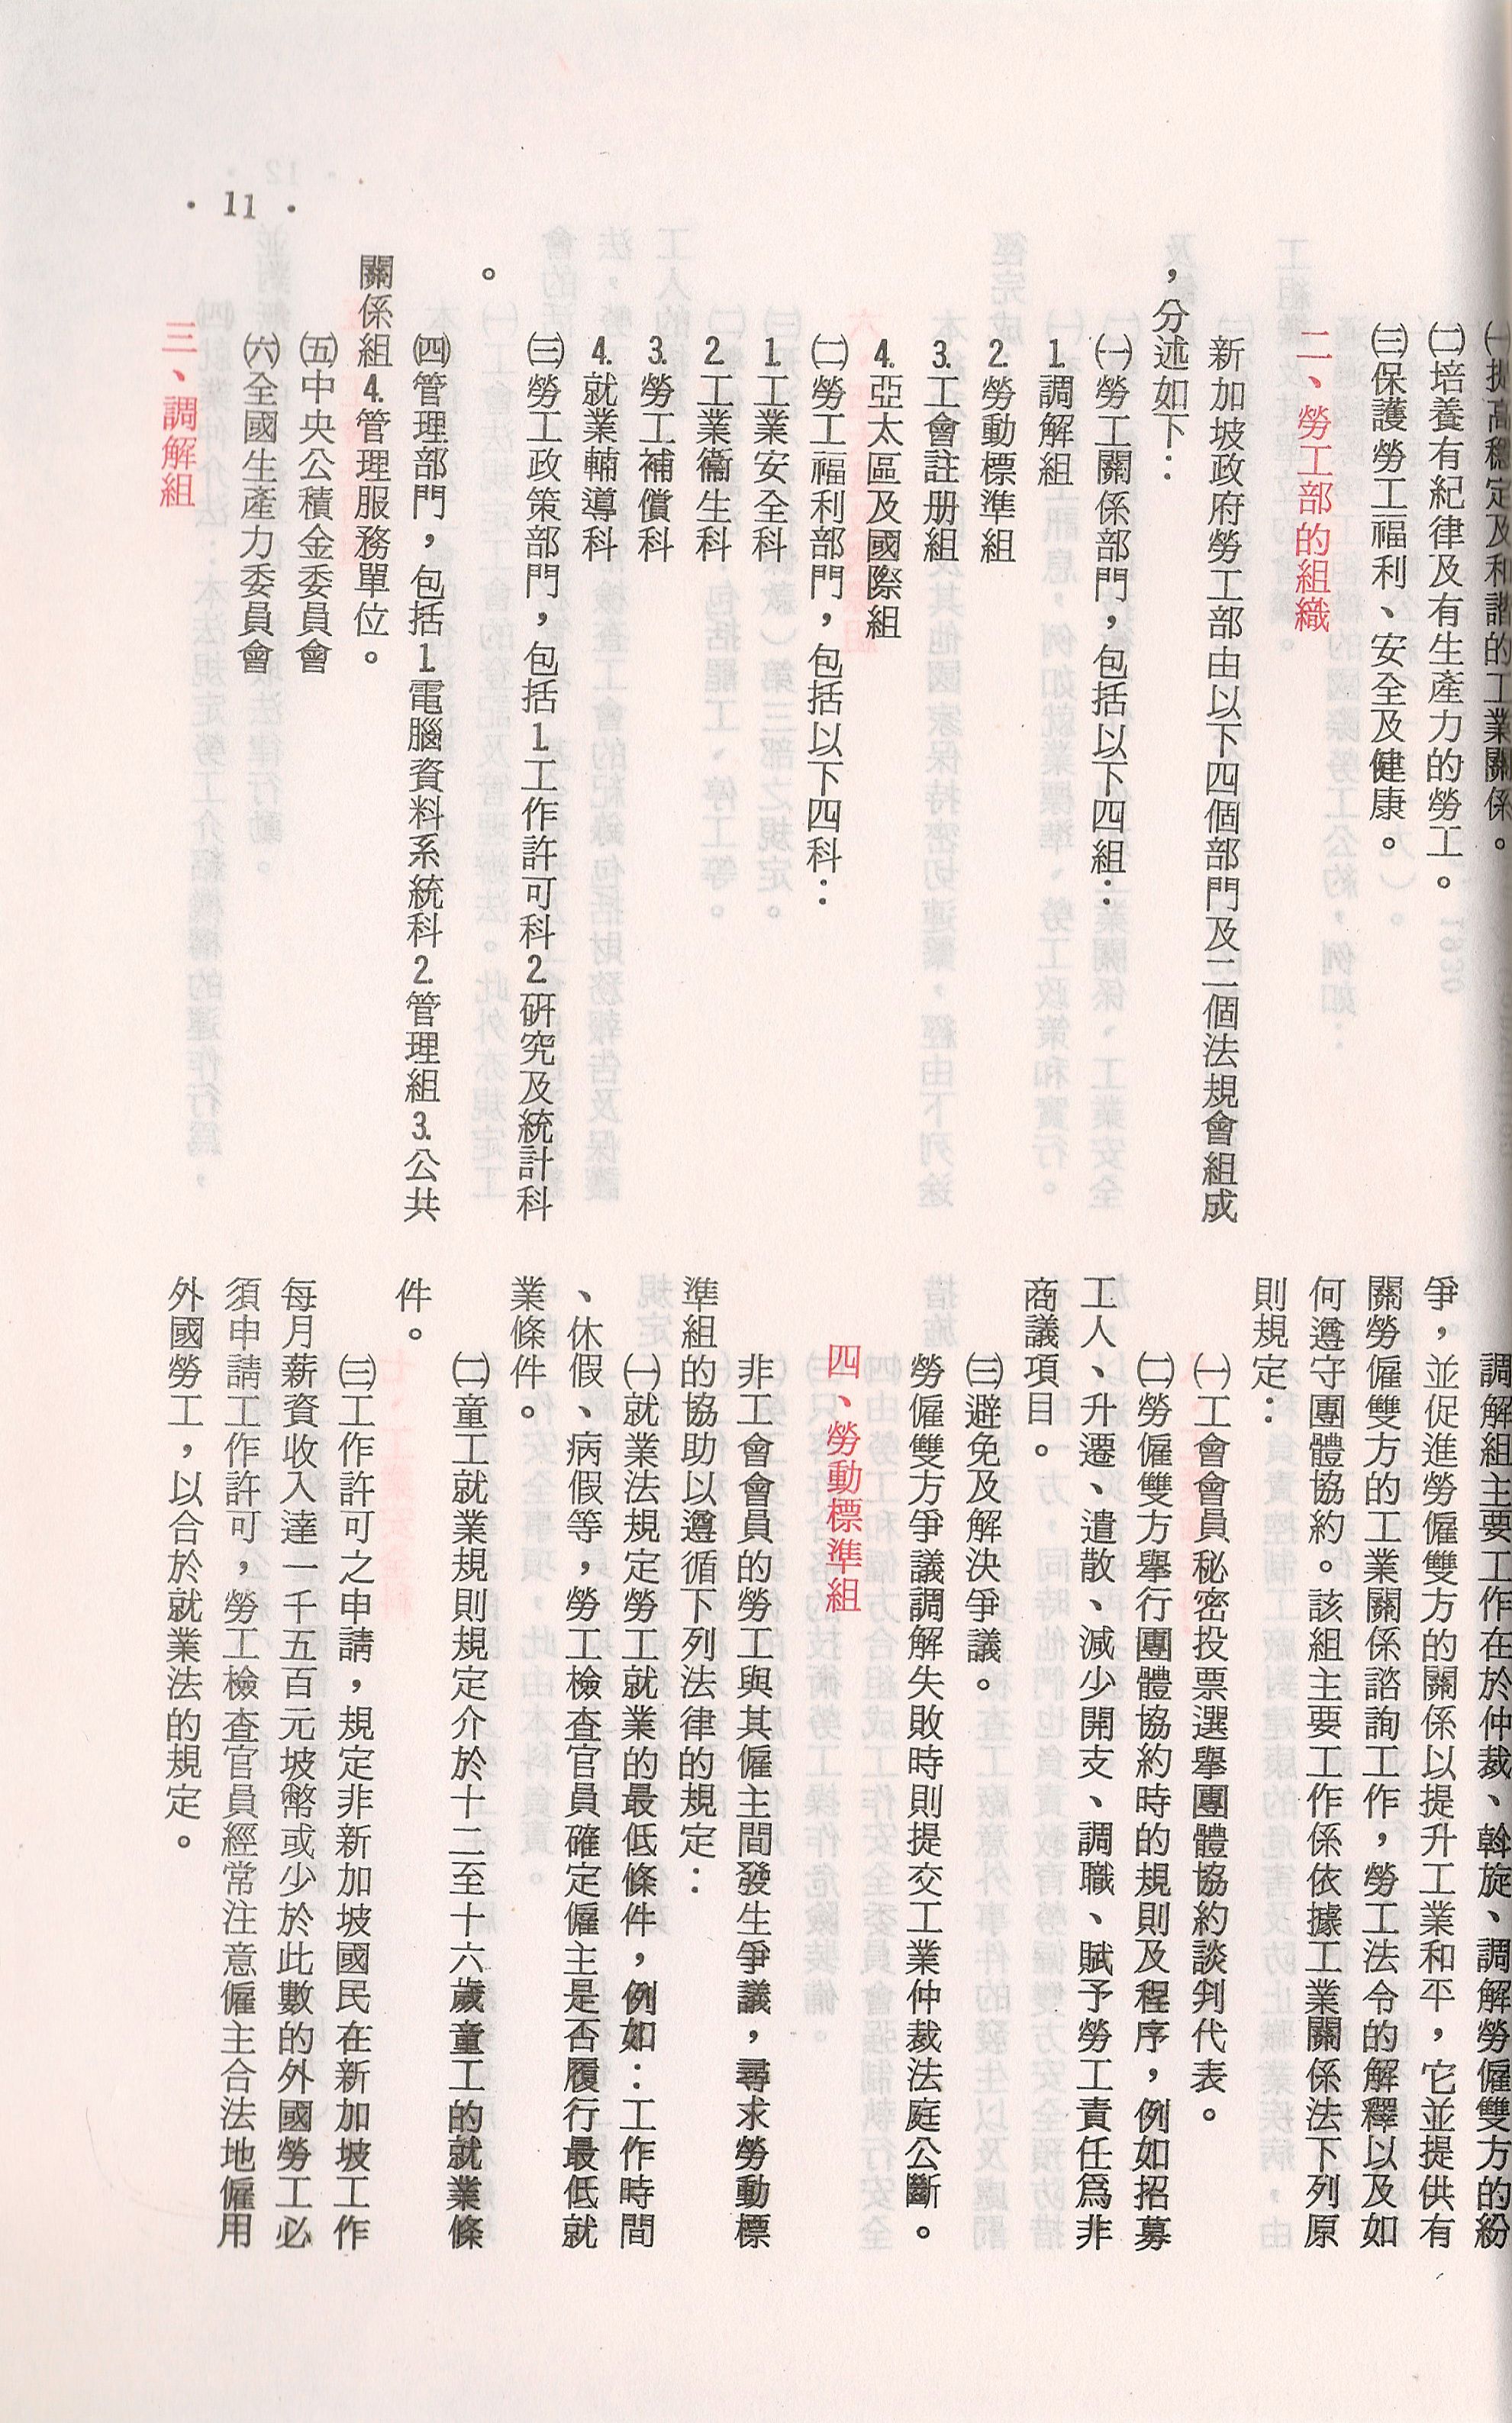 ㈠提高穩定及和諧的工業關係。
㈡培養有紀律及有生產力的勞工。
㈢保護勞工福利、安全及健康。
二、勞工部的組織
新加坡政府勞工部由以下四個部門及二個法規會組成
，分述如下：
㈠勞工關係部門，包括以下四組：
1.調解組
2.勞動標準組
3.工會註册組
4.亞太區及國際組
㈡勞工福利部門，包括以下四科：
1.工業安全科
2.工業衞生科
3.勞工補償科
4.就業輔導科
㈢勞工政策部門，包括1.工作許可科2.研究及統計科
。
㈣管理部門，包括1.電腦資料系統科2.管理組3.公共
關係組4.管理服務單位。
㈤中央公積金委員會
㈥全國生產力委員會
三、調解組
調解組主要工作在於仲裁、斡旋、調解勞僱雙方的紛
爭，並促進勞僱雙方的關係以提升工業和平，它並提供有
關勞僱雙方的工業關係諮詢工作，勞工法令的解釋以及如
何遵守團體協約。該組主要工作係依據工業關係法下列原
則規定：
㈠工會會員秘密投票選舉團體協約談判代表。
㈡勞僱雙方舉行團體協約時的規則及程序，例如招募
工人、升遷、遣散、減少開支、調職、賦予勞工責任爲非
商議項目。
㈢避免及解決爭議。
勞僱雙方爭議調解失敗時則提交工業仲裁法庭公斷。
四、勞動標準組
非工會會員的勞工與其僱主間發生爭議，尋求勞動標
準組的協助以遵循下列法律的規定：
㈠就業法規定勞工就業的最低條件，例如：工作時間
、休假、病假等，勞工檢查官員確定僱主是否履行最低就
業條件。
㈡童工就業規則規定介於十二至十六歲童工的就業條
件。
㈢工作許可之申請，規定非新加坡國民在新加坡工作
每月薪資收入達一千五百元坡幣或少於此數的外國勞工必
須申請工作許可，勞工檢查官員經常注意僱主合法地僱用
外國勞工，以合於就業法的規定。
• 11 •